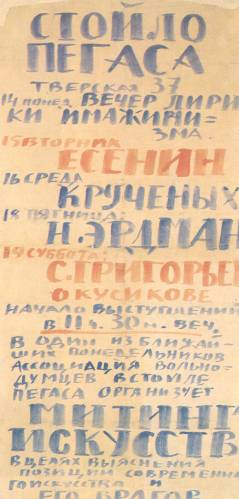 СТОЙЛО
ПЕГАСА
ТВЕРСКАЯ 37
14 ПОНЕД. ВЕЧЕР ЛИРИ
КИ ИМАЖИНИ=
ЗМА.
15 ВТОРНИК
ЕСЕНИН
16 СРЕДА
КРУЧЕНЫХ
18 ПЯТНИЦА:
Н. ЭРДМАН
19 СУББОТА:
С. ГРИГОРЬЕВ
О КУСИКОВЕ
НАЧАЛО ВЫСТУПЛЕНИЙ
В 11 ч. 30 м. ВЕЧ.
В ОДИН ИЗ БЛИЖАЙ=
ШИХ ПОНЕДЕЛЬНИКОВ
АССОЦИАЦИЯ ВОЛЬНО=
ДУМЦЕВ В СТОЙЛЕ
ПЕГАСА ОРГАНИЗУЕТ
МИТИНГ
ИСКУССТВ
В ЦЕЛЯХ ВЫЯСНЕНИЯ
ПОЗИЦИИ СОВРЕМЕННО
ГО ИСКУССТВА И
ЕГО ВРАГОВ